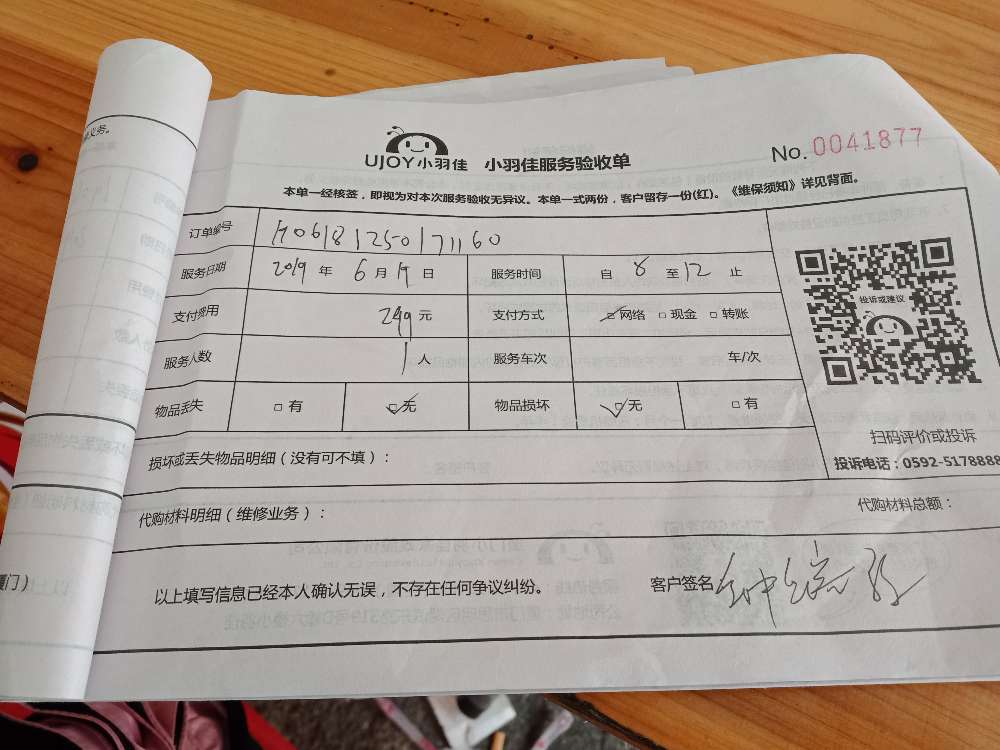 UJOY小羽佳 小羽佳服务验收单
No. 0041877
本单一经核签，即视为对本次服务验收无异议。本单一式两份，客户留存一份(红)。《维保须知》详见背面。
订单编号 H06181250171160
服务日期 2019 年 6 月 19 日 服务时间 自 8 至 12 止
支付费用 249 元 支付方式 ☑网络 □现金 □转账
服务人数 1 人 服务车次 车/次
物品丢失 □有 ☑无 物品损坏 ☑无 □有
投诉或建议
扫码评价或投诉
投诉电话：0592-5178888
损坏或丢失物品明细（没有可不填）：
代购材料明细（维修业务）： 代购材料总额：
以上填写信息已经本人确认无误，不存在任何争议纠纷。 客户签名
义务。
厦门）